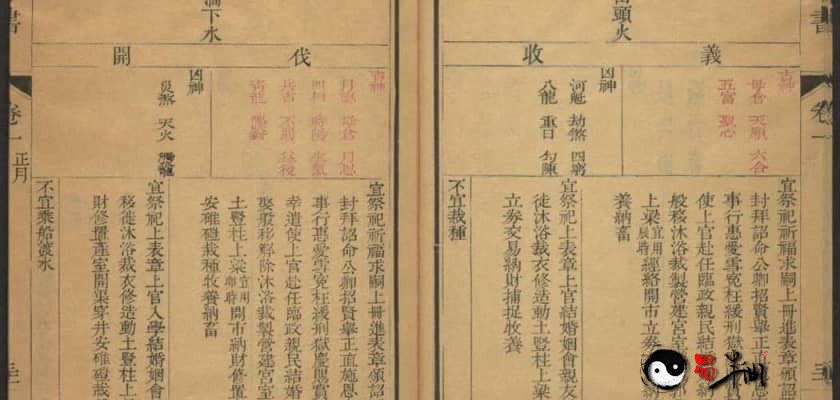 書
卷一
頭火
義 收
吉神
母倉 天願 六合
五富 聖心
凶神
河魁 劫煞 四窮
八龍 重日 勾陳
宜祭祀祈福求嗣上冊進表章頒詔
封拜詔命公卿招賢舉正直施恩
事行惠愛雪寃枉緩刑獄
使上官赴任臨政親民結
般移沐浴裁製營建宮室
上梁宜用辰時經絡開市立券
養納畜
宜祭祀上表章上官結婚姻會親友
徙沐浴裁衣修造動土豎柱上梁
立券交易納財捕捉牧養
不宜栽種
澗下水
伐 開
吉神
母倉 月恩
四相 時陽 生氣
兵吉 不將 益後
青龍 鳴吠
凶神
災煞 天火
宜祭祀祈福求嗣上冊進表章頒詔
封拜詔命公卿招賢舉正直施恩
事行惠愛雪寃枉緩刑獄慶賜賞
幸遣使上官赴任臨政親民結婚
娶般移解除沐浴裁製營建宮室
土豎柱上梁宜用卯時開市納財修置
安碓磑栽種牧養納畜
宜祭祀上表章上官入學結婚姻會
移徙沐浴裁衣修造動土豎柱上
財修置產室開渠穿井安碓磑栽
不宜乘船渡水
書
卷一
正月
易